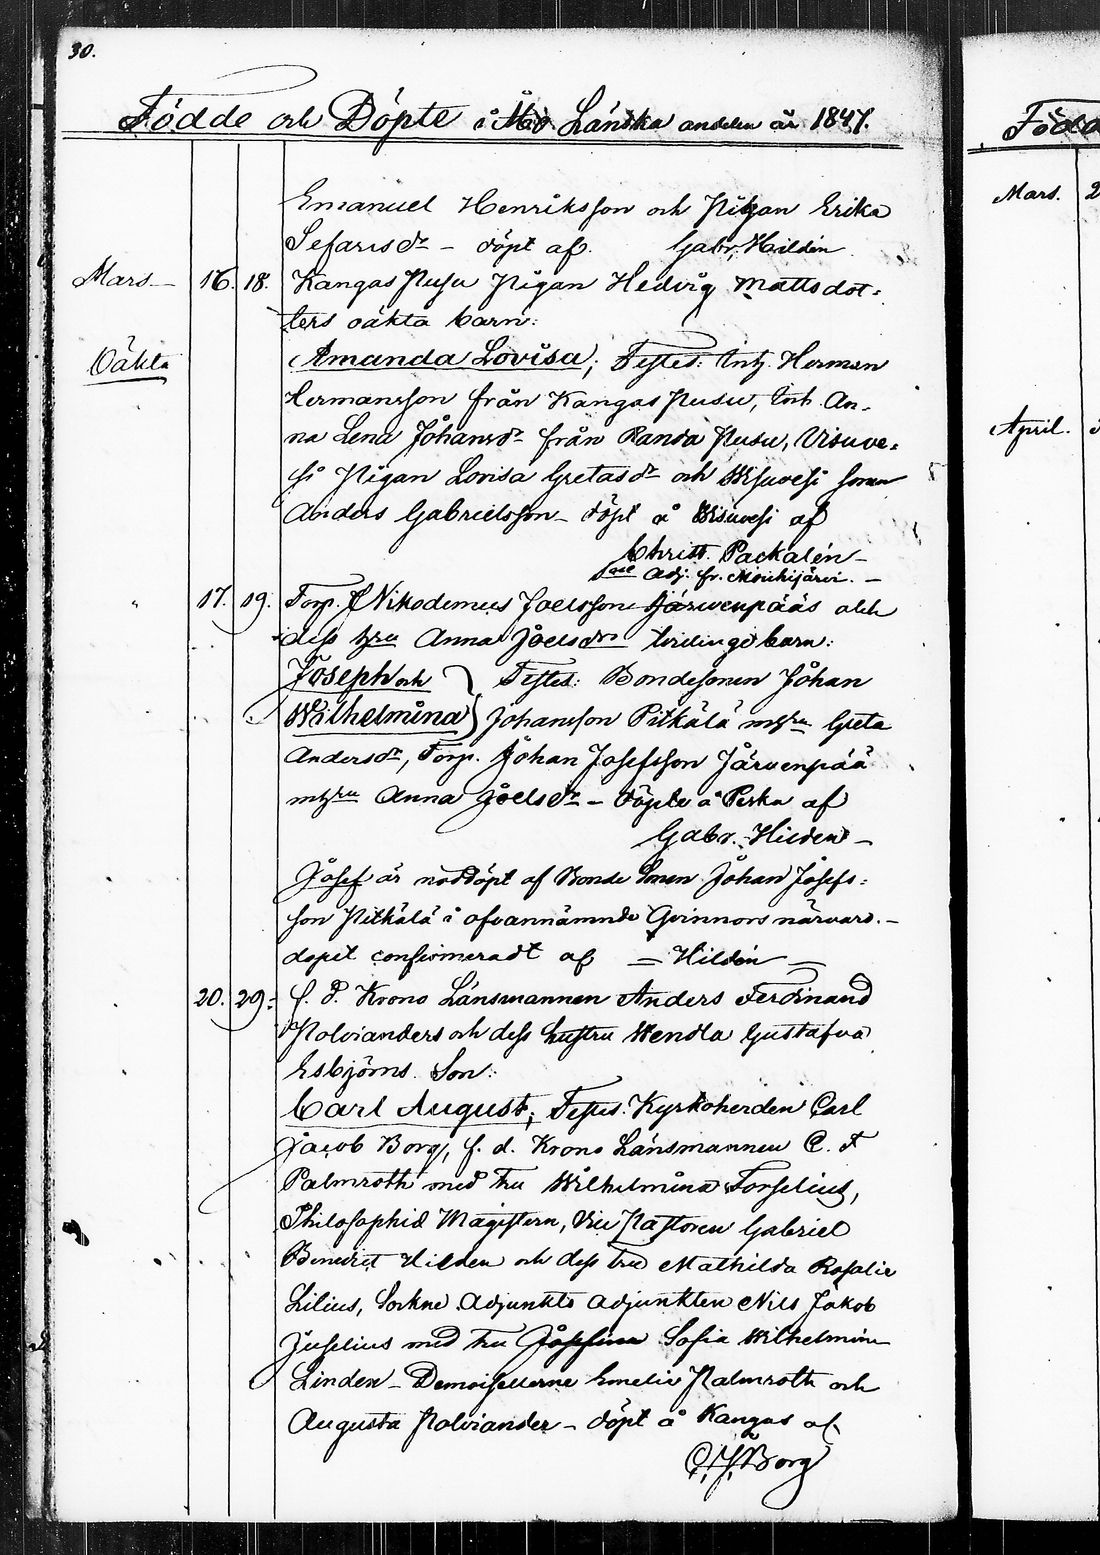 30.
Födde och Döpte i Länska andelen år 1847.
Födde
Emanuel Henriksson och Pigan Erika
Sefarisdr – döpt af Gabr. Hildén
Mars – 16. 18. Kangas Pusu Pigan Hedvig Mattsdot-
ters oäkta barn:
Oäkta Amanda Lovisa; Testes: Inh. Herman
Hermansson från Kangas Pusu, Inh. An-
na Lena Johansdr från Randa Pusu, Visuve-
si Pigan Lovisa Gretasdr och Wisuvesi sonen
Anders Gabrielsson – döpt å Wisuvesi af
Christ. Packalén –
Sac. Adj. fr. Mouhijärvi. –
17. 19. Torp. Nikodemus Joelsson Järwenpääs och
dess hru Anna Joelsdrs tvilinge barn:
Joseph och Testes: Bondesonen Johan
Wilhelmina Johansson Pitkälä m hru Greta
Andersdr, Torp. Johan Josefsson Järvenpää
m hru Anna Joelsdr – döpte å Perka af
Gabr. Hilden –
Josef är nöddöpt af Bonde Sonen Johan Josefs-
son Pitkälä i ofvannämnde Qvinnors närvaro. –
dopet confirmeradt af – Hildén –
20. 29. f. d. Krono Länsmannen Anders Ferdinand
Polvianders och dess hustru Wendla Gustafva
Esbjörns Son:
Carl August; Testes: Kyrkoherden Carl
Jacob Borg, f. d. Krono Länsmannen C. F
Palmroth med Fru Wilhelmina Forselius,
Philosophid Magistern, Vice Pastoren Gabriel
Benedict Hilden och dess Fru Mathilda Rosalie
Lilius, Sockne Adjunkts adjunkten Nils Jakob
Juselius med Fru Josefina Sofia Wilhelmina
Linden – Demoisellerne Emelie Palmroth och
Augusta Polviander – döpt å Kangas af
C. J. Borg
Mars. 2
April.